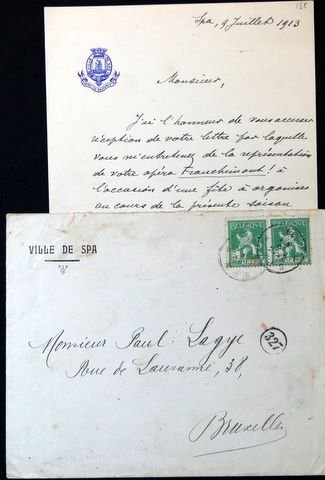 158
Spa, 9 Juillet 1913
Monsieur,
J'ai l'honneur de vous accuser
réception de votre lettre par laquelle
vous m'entretenez de la représentation
de votre opéra Franchimont! à
l'occasion d'une fête à organiser
au cours de la présente saison
BELGIQUE BELGIË
VILLE DE SPA
Monsieur Paul Lagye
327
Rue de Lausanne, 38,
Bruxelles